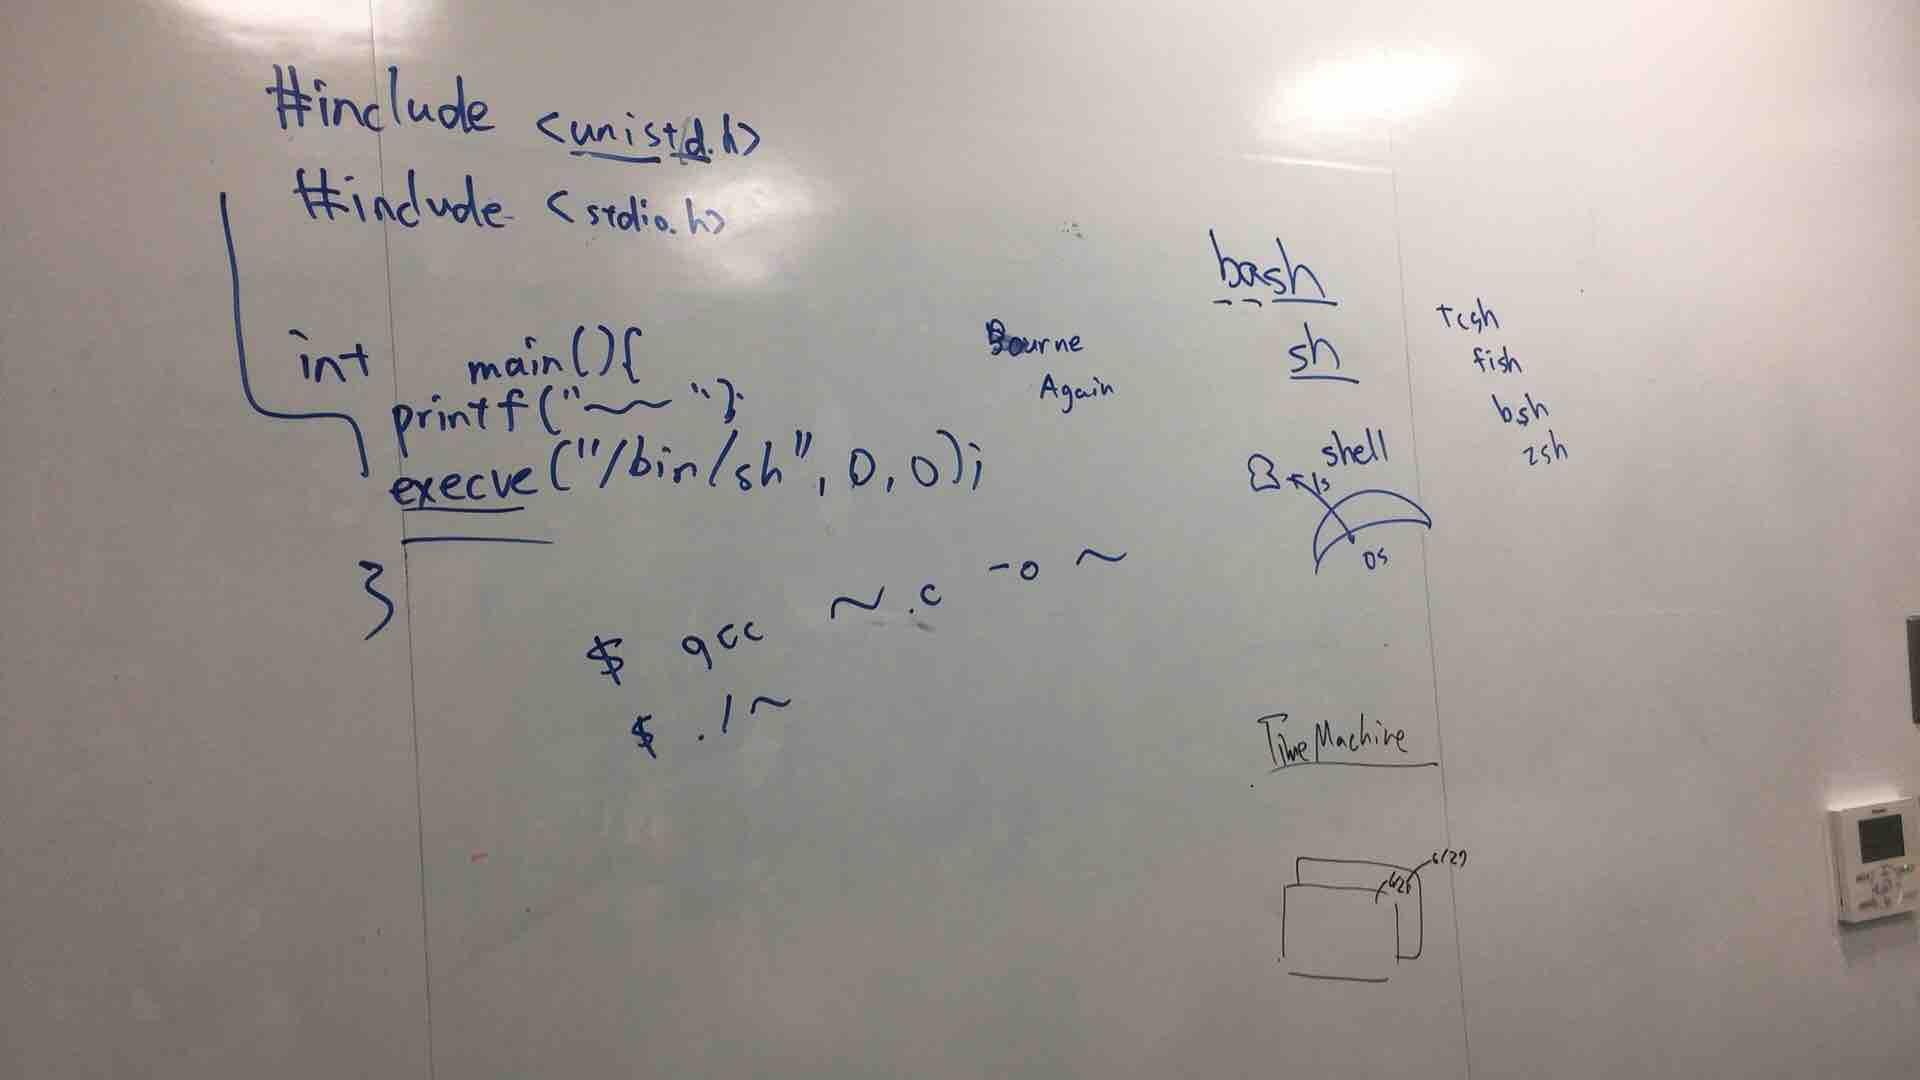 #include <unistd.h>
#include <stdio.h>
int main(){
printf("~~");
execve("/bin/sh", 0, 0);
}
$ gcc ~.c -o ~
$ ./~
Bourne
Again
bash
sh
tcsh
fish
bsh
zsh
shell
ls
OS
Time Machine
6/27